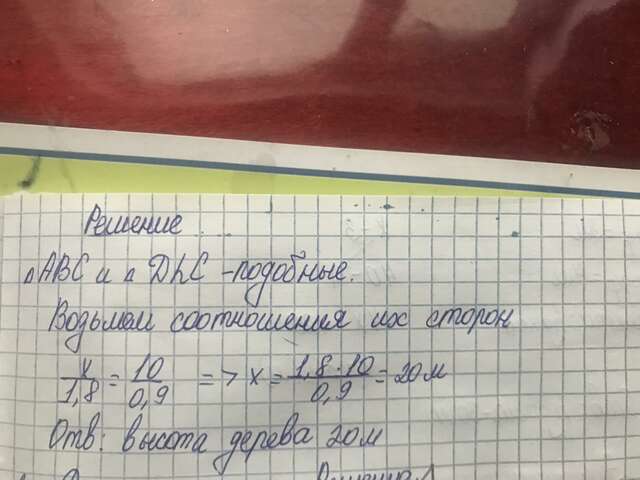 Решение
△ABC и △DLC - подобные.
Возьмем соотношения их сторон
x/1,8 = 10/0,9 => x = 1,8·10/0,9 = 20м
Отв: высота дерева 20м